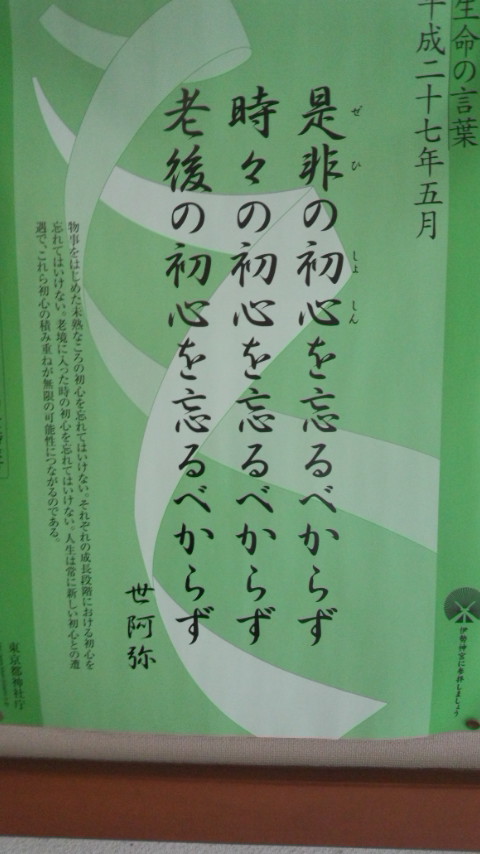 生命の言葉
平成二十七年五月
是非の初心を忘るべからず
ぜひ
しょしん
時々の初心を忘るべからず
老後の初心を忘るべからず
世阿弥
物事をはじめた未熟なころの初心を忘れてはいけない。それぞれの成長段階における初心を
忘れてはいけない。老境に入った時の初心を忘れてはいけない。人生は常に新しい初心との遭
遇で、これら初心の積み重ねが無限の可能性につながるのである。
伊勢神宮に参拝しましょう
東京都神社庁